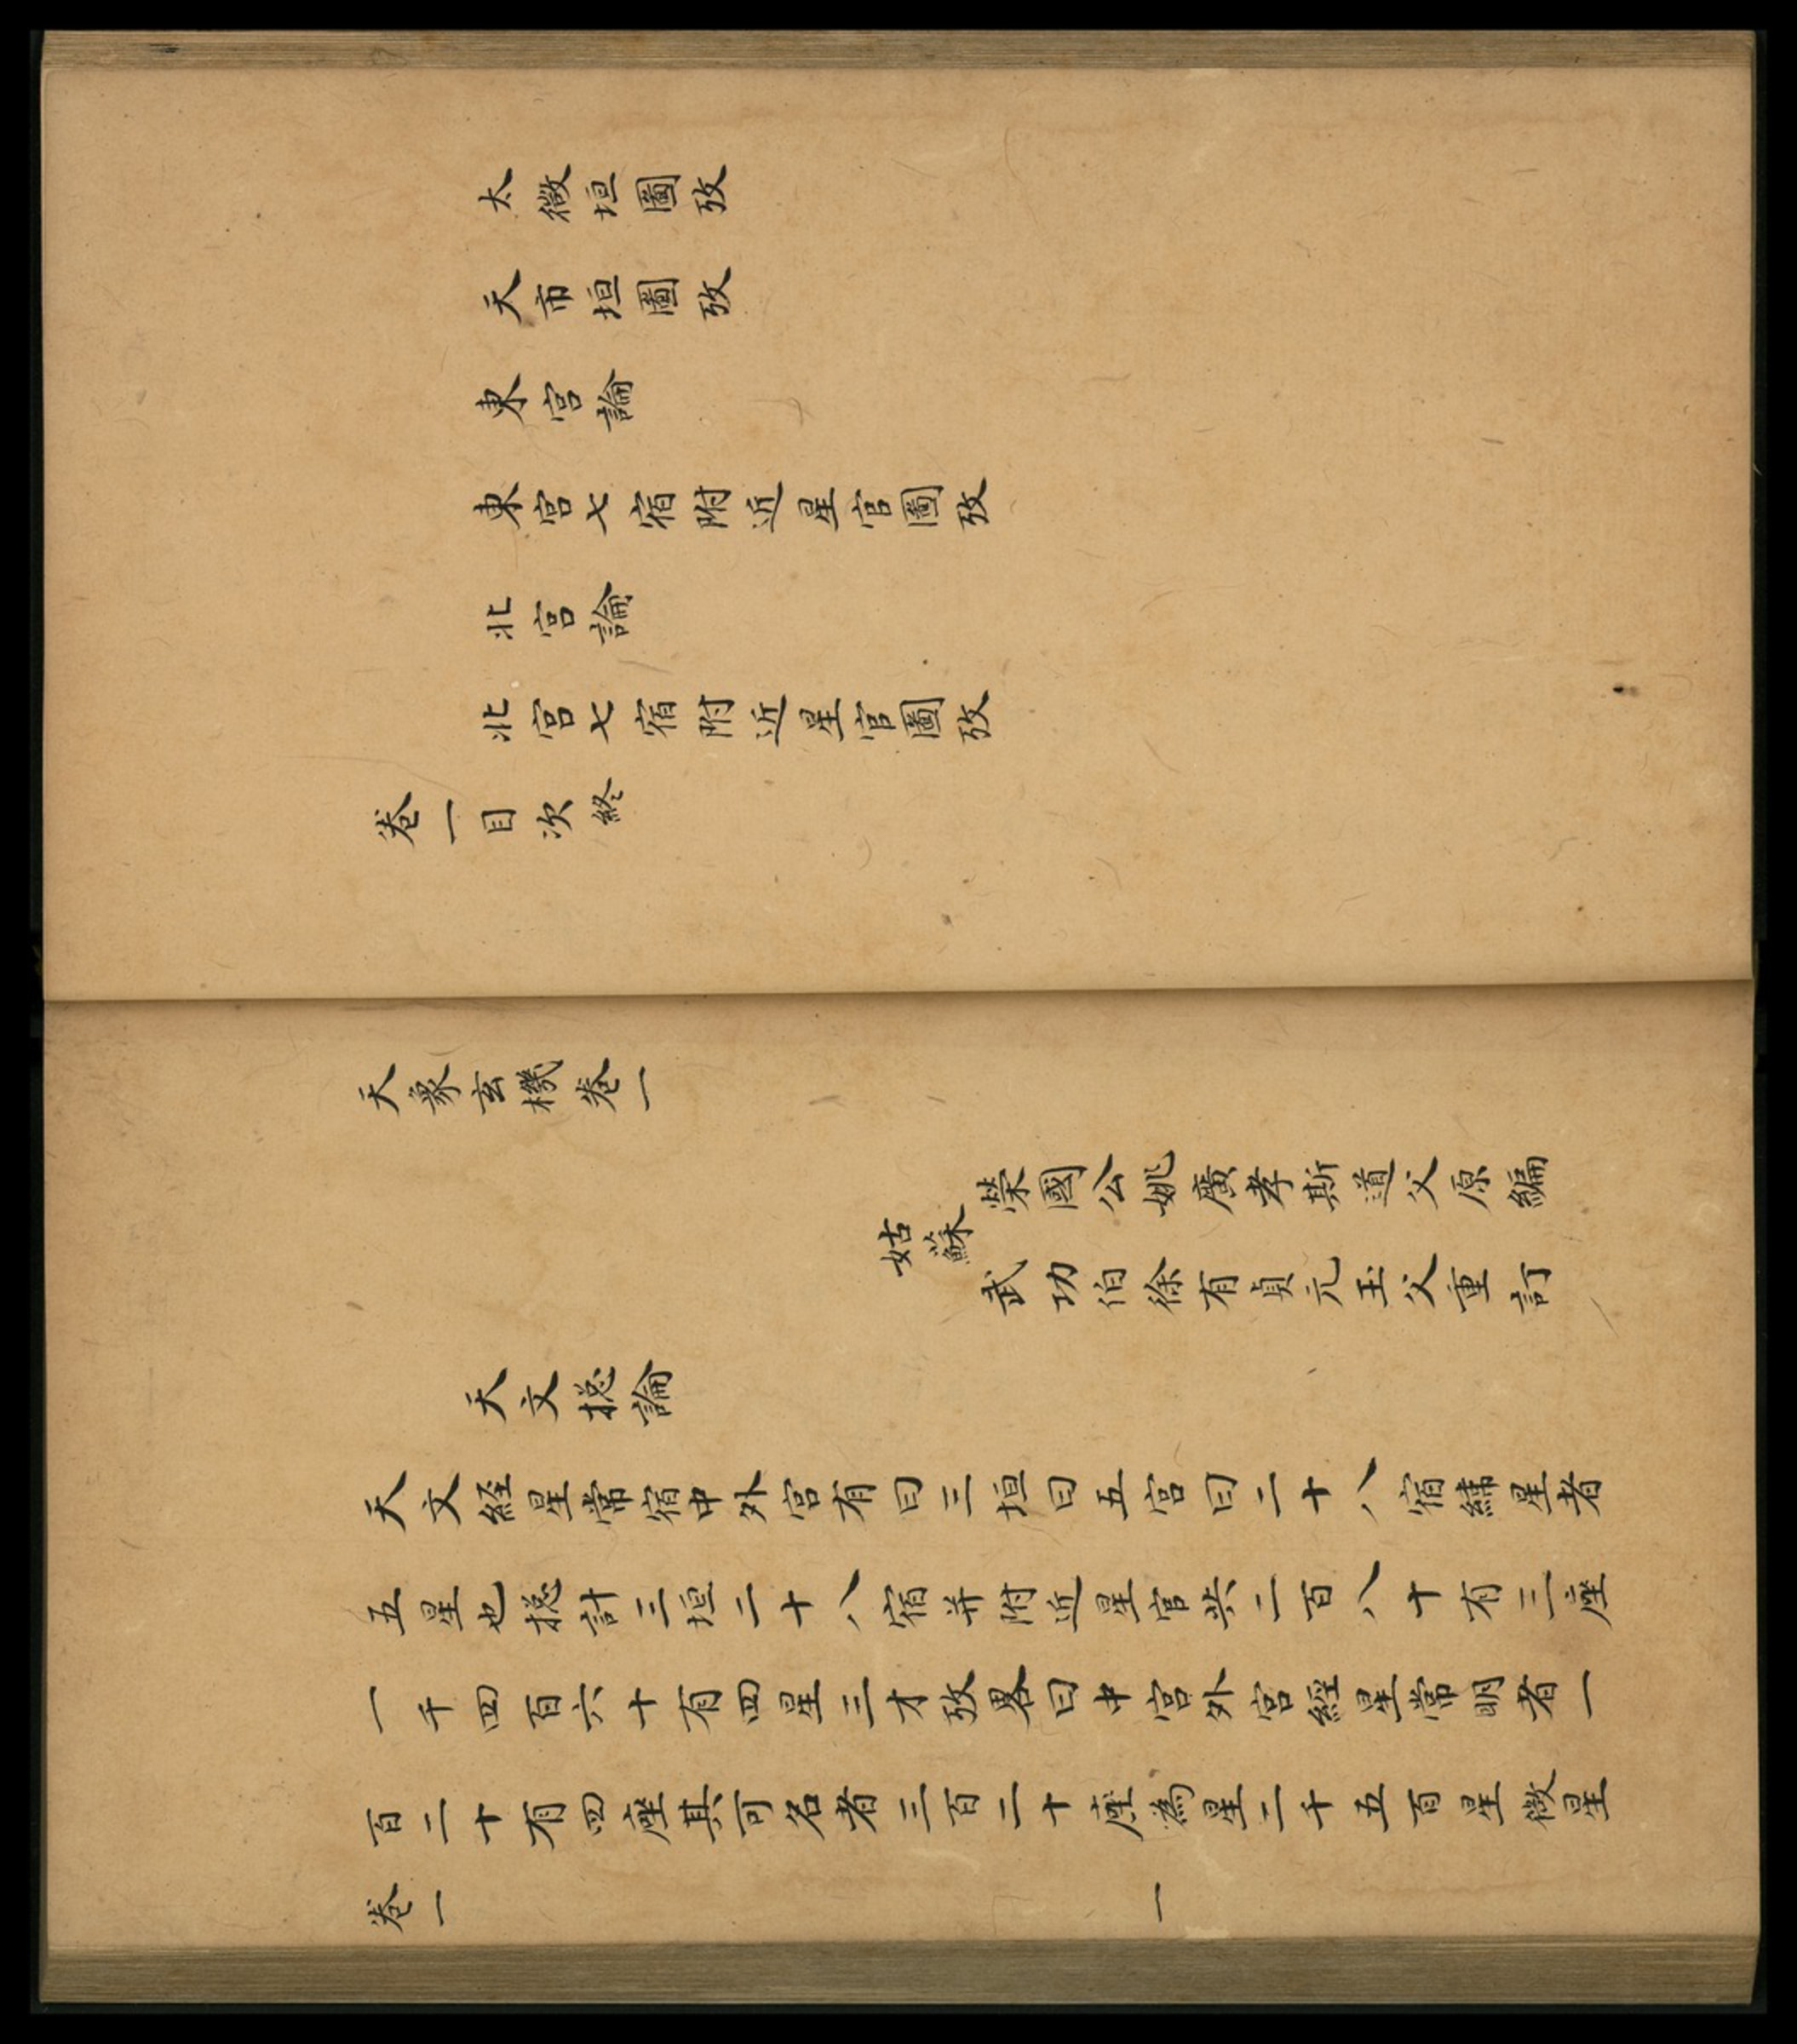 太微垣圖攷
天市垣圖攷
東宮論
東宮七宿附近星官圖攷
北宮論
北宮七宿附近星官圖攷
卷一目次終
天象玄機卷一
榮國公姚廣孝斯道父原編
姑蘇
武功伯徐有貞元玉父重訂
天文捴論
天文経星常宿中外宮有曰三垣曰五宮曰二十八宿緯星者
五星也捴計三垣二十八宿并附近星官共二百八十有三座
一千四百六十有四星三才攷畧曰中宮外宮經星常明者一
百二十有四座其可名者三百二十座為星二千五百星微星
卷一
一